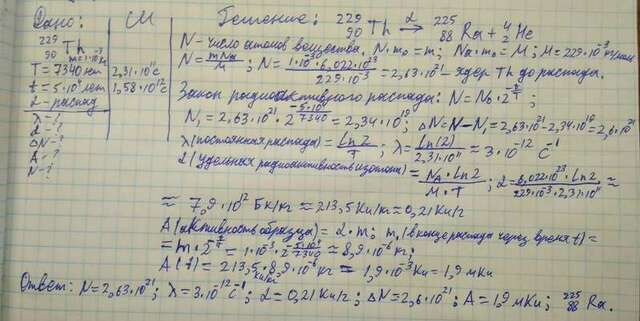 Дано:
229 90 Th m=1·10⁻³
T = 7340 лет
t = 5·10⁴ лет
α-распад
λ-?
α-?
ΔN-?
A-?
N-?
СИ
2,31·10¹¹с
1,58·10¹²с
Решение: 229 90 Th →α 225 88 Ra + 4 2 He
N - число атомов вещества. N·m₀ = m; Nₐ·m₀ = M; M = 229·10⁻³ кг/моль
N = mNₐ/M; N = 1·10⁻³·6,022·10²³/229·10⁻³ = 2,63·10²¹ - ядер Th до распада.
Закон радиоактивного распада: N = N₀·2^(-t/T);
N₁ = 2,63·10²¹·2^(-5·10⁴/7340) = 2,34·10¹⁹; ΔN = N-N₁ = 2,63·10²¹-2,34·10¹⁹ = 2,6·10²¹
λ (постоянная распада) = ln2/T; λ = ln(2)/2,31·10¹¹ ≈ 3·10⁻¹² с⁻¹
α (удельная радиоактивность изотопа) = Nₐ·ln2/M·T; α = 6,022·10²³·ln2/229·10⁻³·2,31·10¹¹ ≈
≈ 7,9·10¹² Бк/кг ≈ 213,5 Ки/кг ≈ 0,21 Ки/г
A (активность образца) = α·m; m₁ (в конце распада через время t) =
= m·2^(-t/T) = 1·10⁻³·2^(-5·10⁴/7340) ≈ 8,9·10⁻⁶ кг;
A(t) = 213,5 Ки/кг·8,9·10⁻⁶ кг = 1,9·10⁻³ Ки = 1,9 мКи
Ответ: N = 2,63·10²¹; λ = 3·10⁻¹² с⁻¹; α = 0,21 Ки/г; ΔN = 2,6·10²¹; A = 1,9 мКи; 225 88 Ra.